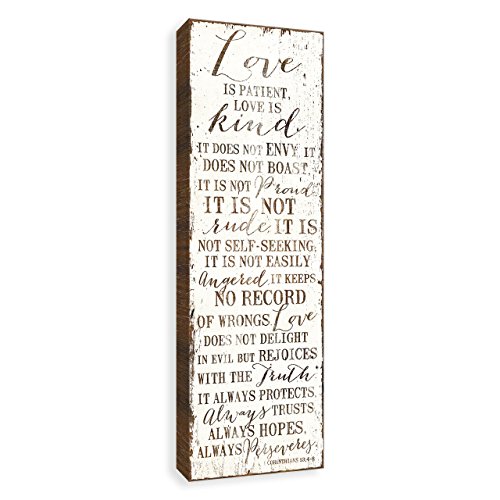 Love
IS PATIENT,
LOVE IS
kind.
IT DOES NOT ENVY, IT
DOES NOT BOAST,
IT IS NOT Proud.
IT IS NOT
rude, IT IS
NOT SELF-SEEKING,
IT IS NOT EASILY
Angered, IT KEEPS
NO RECORD
OF WRONGS. Love
DOES NOT DELIGHT
IN EVIL BUT REJOICES
WITH THE Truth.
IT ALWAYS PROTECTS,
Always TRUSTS,
ALWAYS HOPES,
ALWAYS Perseveres.
1 CORINTHIANS 13:4-8